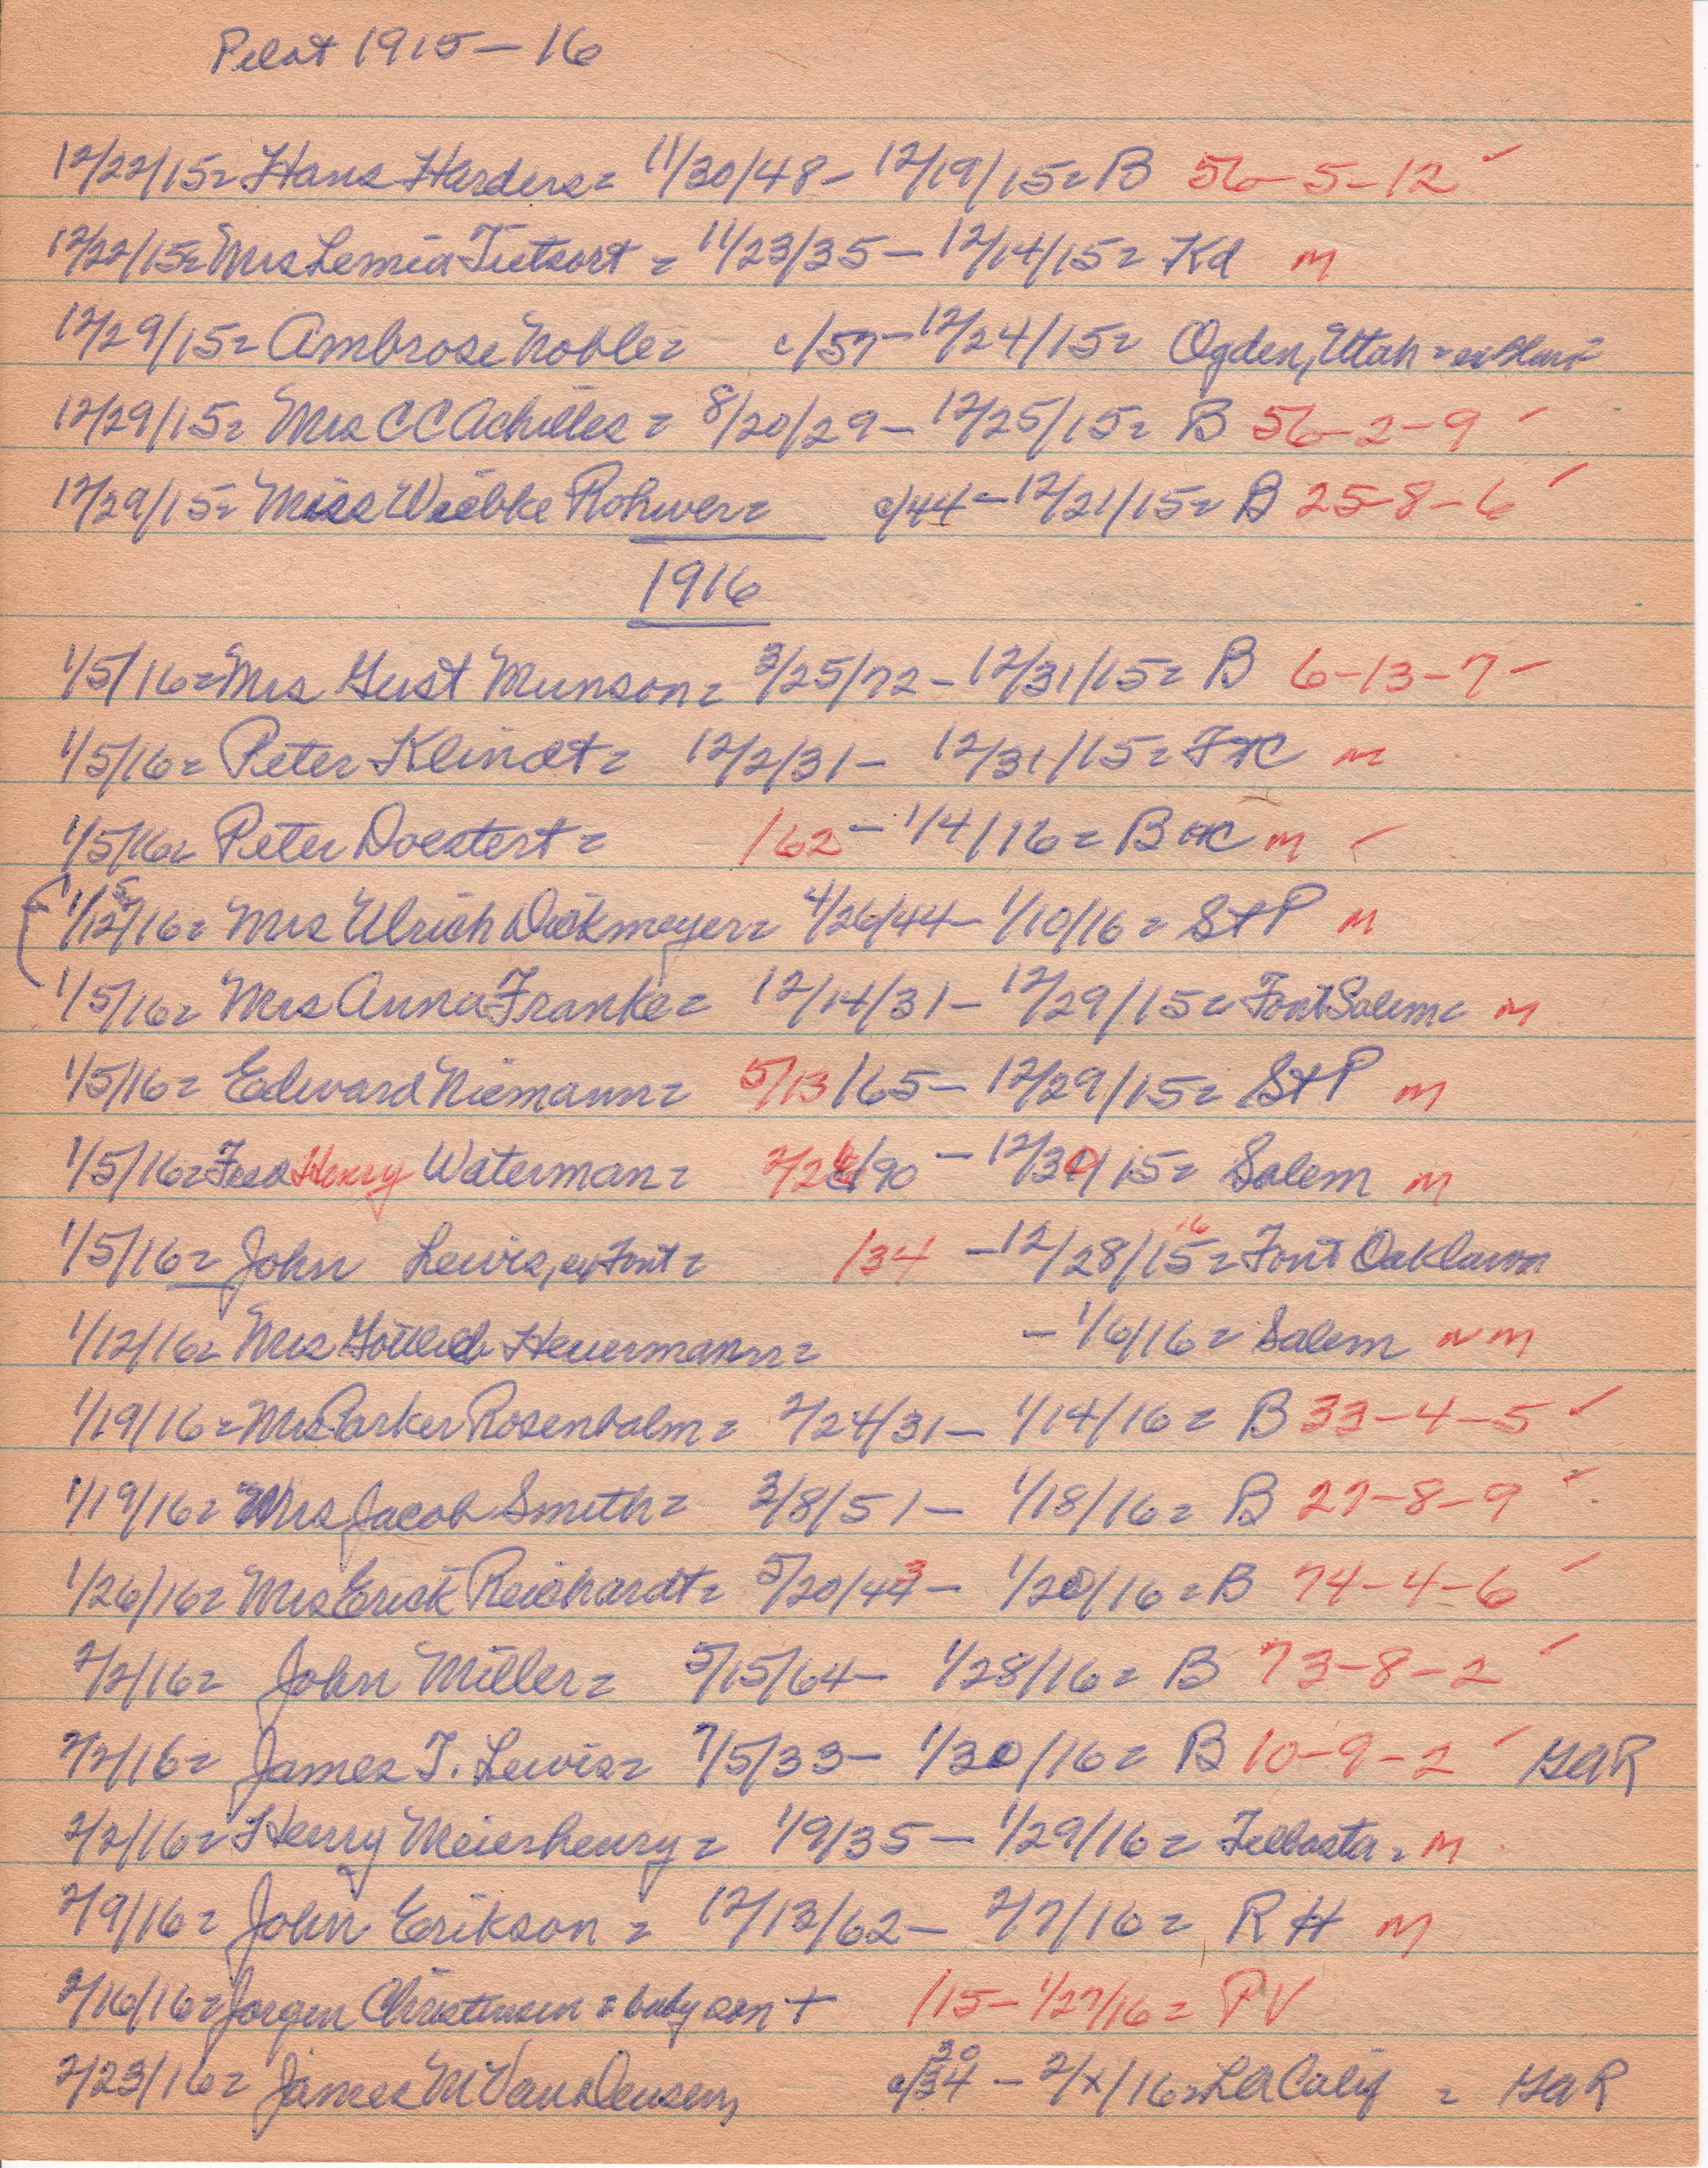 Pilot 1915-16
12/22/15= Hans Harders= 11/30/48- 12/19/15= B 56-5-12 ✓
12/22/15= Mrs Lemia Tietsort = 11/23/35- 12/14/15= Kd m
12/29/15= Ambrose Noble= c/57- 12/24/15= Ogden, Utah =
12/29/15= Mrs C C Achilles = 8/20/29- 12/25/15= B 56-2-9 ✓
12/29/15= Miss Wiebke Rohwer= c/44- 12/21/15= B 25-8-6 ✓
1916
1/5/16= Mrs Gust Munson= 3/25/72- 12/31/15= B 6-13-7-
1/5/16= Peter Klindt= 12/2/31- 12/31/15= FHC m
1/5/16= Peter Doestert= /62- 1/4/16= B HC m ✓
1/12/16= Mrs Ulrich Dickmeyer= 4/26/44- 1/10/16= St P m
1/5/16= Mrs Anna Franke= 12/14/31- 12/29/15= Font Salem= m
1/5/16= Edward Niemann= 5/13/65- 12/29/15= St P m
1/5/16= Fred Henry Waterman= 2/2 /90- 12/30/15= Salem m
1/5/16= John Lewis, ex Font= /34 -12/28/15 16= Font Oaklawn
1/12/16= Mrs Gottlieb Heuermann= - 1/6/16= Salem nm
1/19/16= Mrs Parker Rosenbalm= 2/24/31- 1/14/16= B 33-4-5 ✓
1/19/16= Mrs Jacob Smith= 3/8/51- 1/18/16= B 27-8-9 ✓
1/26/16= Mrs Erick Reichardt= 5/20/44 3- 1/20/16= B 74-4-6 ✓
2/2/16= John Miller= 5/15/64- 1/28/16= B 73-8-2 ✓
2/2/16= James T. Lewis= 7/5/33- 1/30/16= B 10-9-2 ✓ GAR
2/2/16= Henry Meierhenry= 1/9/35- 1/29/16= Telbasta= m
2/9/16= John Erikson= 12/13/62- 2/7/16= R H m
2/16/16= Jorgen Christensen= baby son + /15- 1/27/16= PV
2/23/16= James M VanDeusen, c/34 30 - 2/x/16= LA Calif = GAR